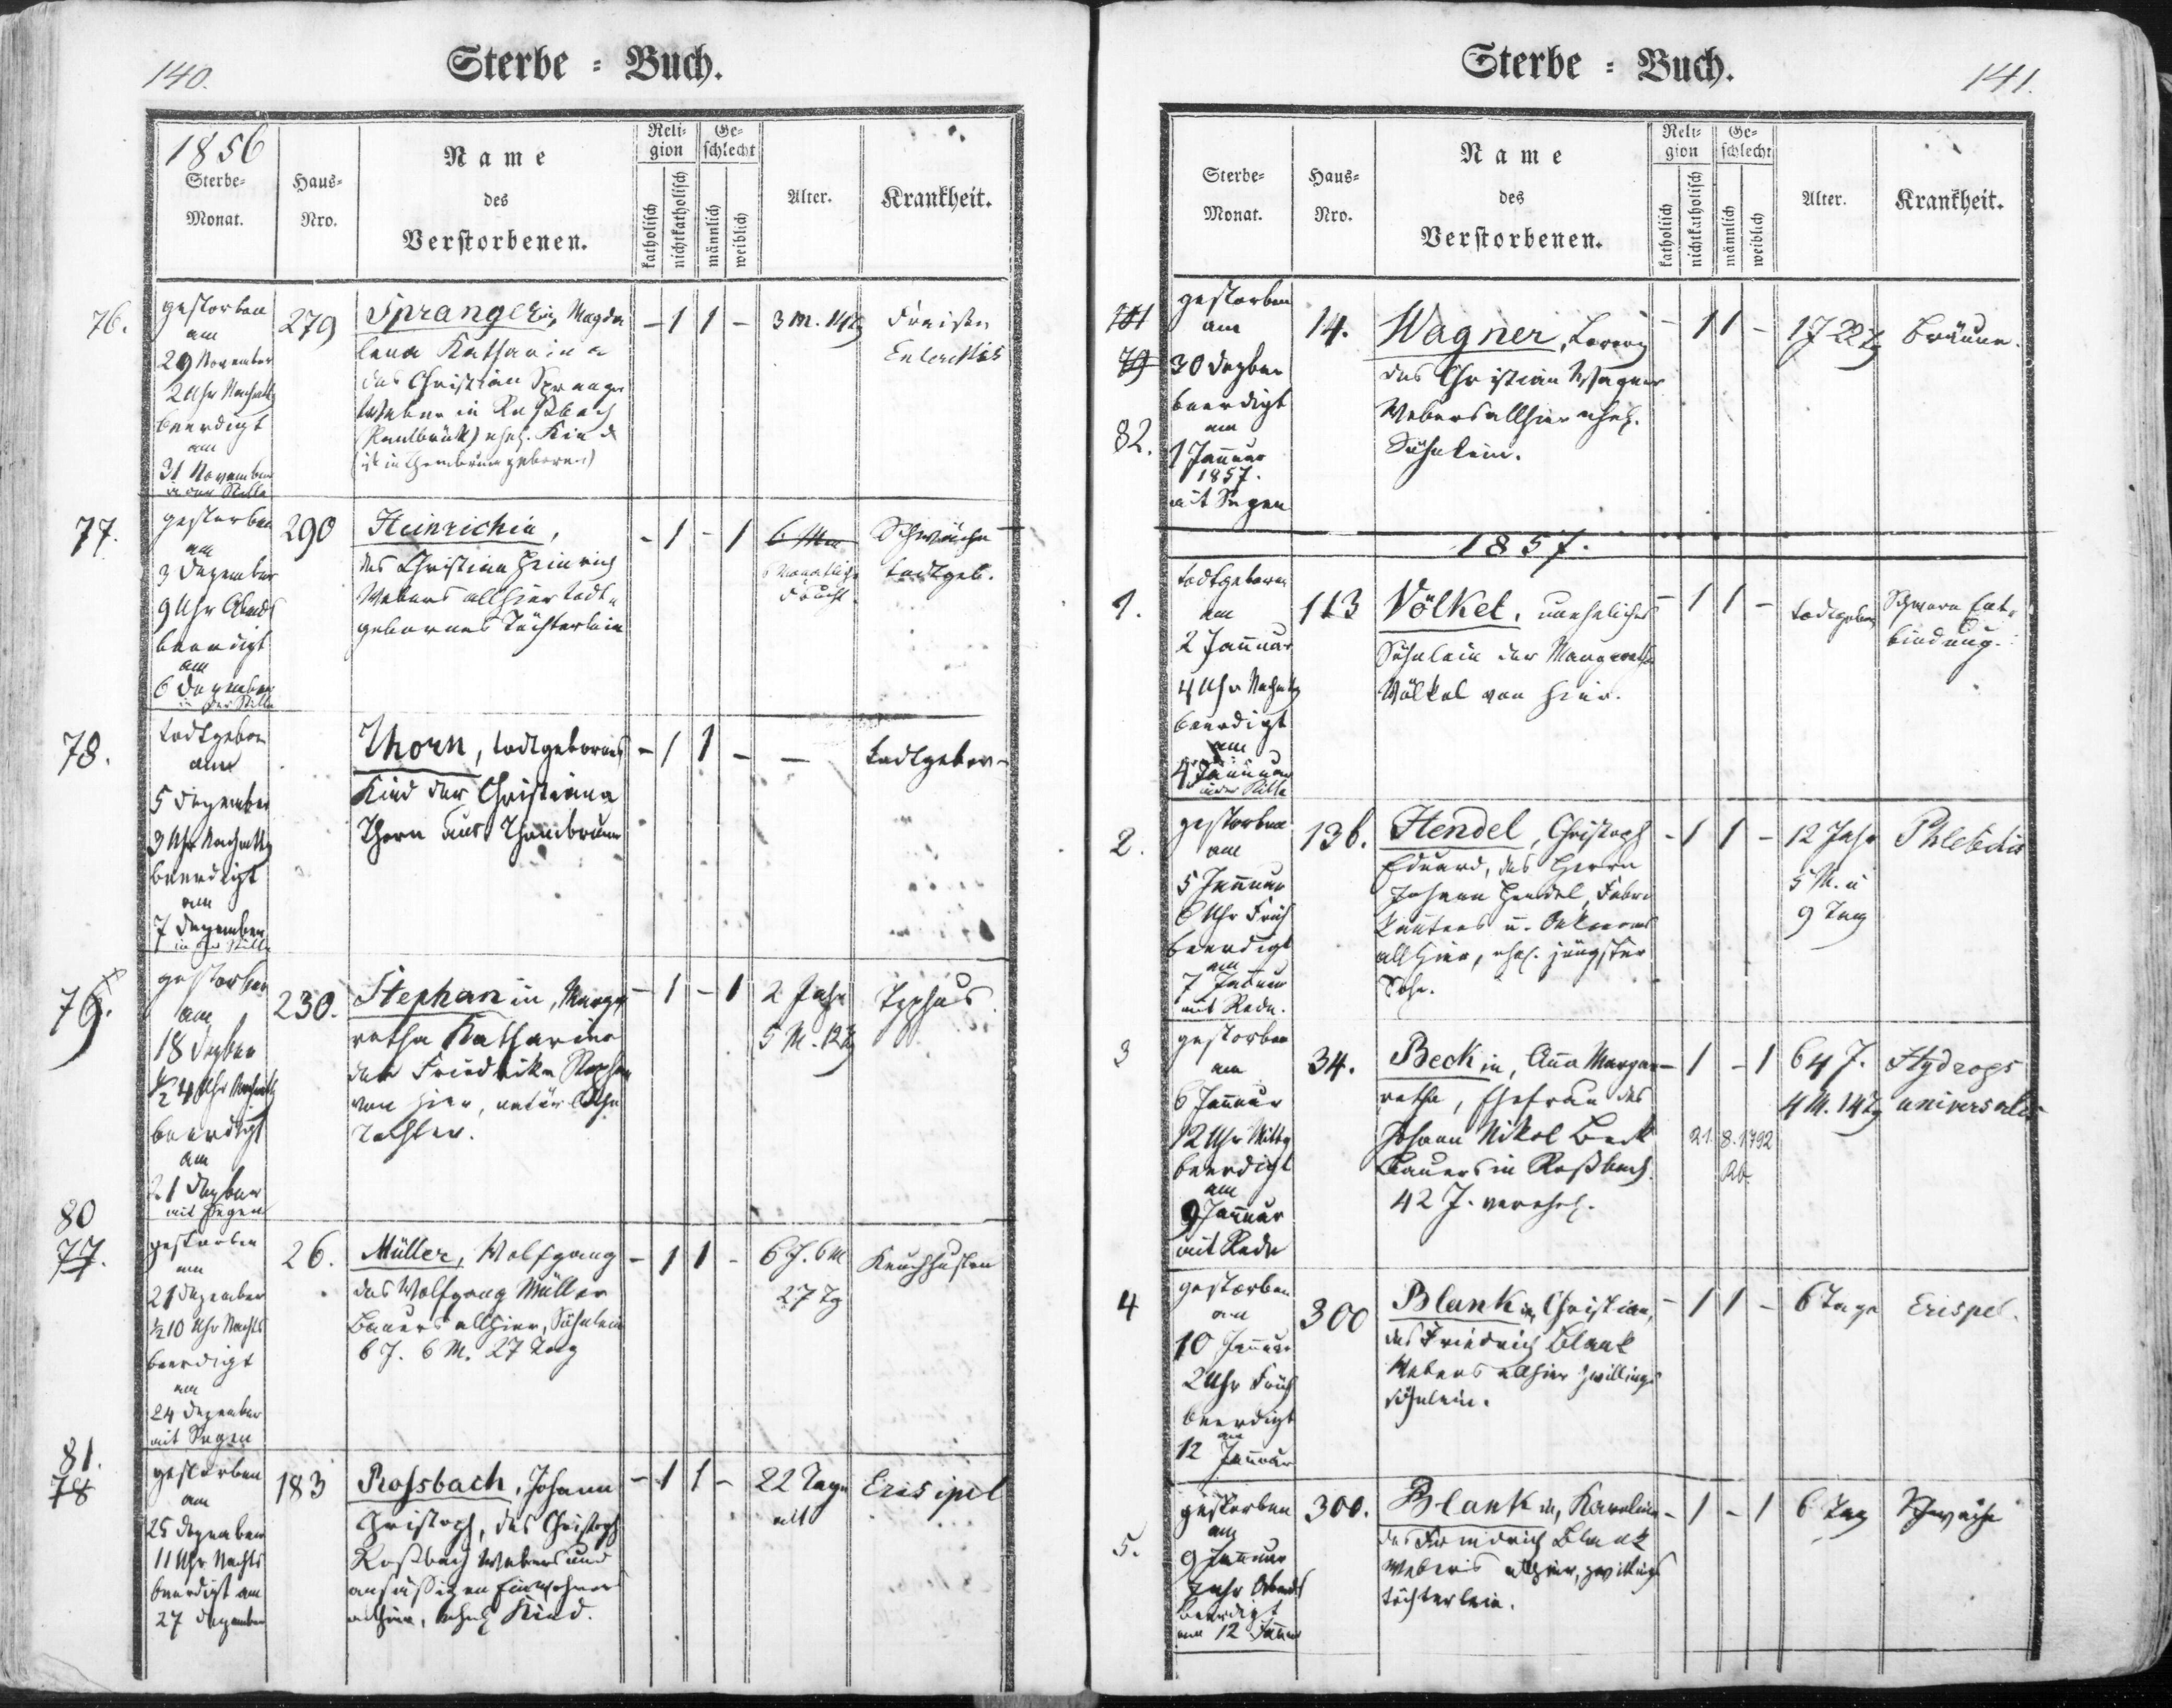 140.
Sterbe = Buch.
1856
Sterbe-
Monat.
Haus-
Nro.
Name
des
Verstorbenen.
Reli-
gion
katholisch
nichtkatholisch
Ge-
schlecht
männlich
weiblich
Alter.
Krankheit.
76.
gestorben
am
29 November
2 Uhr Nachmttg
beerdigt
am
31 November
in der Stille
279
Sprangerin, Magda
lena Katharina
des Christian Spranger
Weber in Roßbach
ehel. Kind
geboren)
- 1 1 -
3 M. 14 Tg
Fraisen
77.
gestorben
am
3 Dezember
9 Uhr Abends
beerdigt
am
6 Dezember
in der Stille
290
Heinrichin,
des Christian Heinrich
Webers allhier todt
gebornes Töchterlein
- 1 - 1
6 Mon
6 Monatliche
Frucht
Schwäche
todtgeb.
78.
todtgeboren
am
5 Dezember
3 Uhr Nachmttg
beerdigt
am
7 Dezember
in der Stille
Thorn, todtgebornes
Kind der Christiana
Thorn aus Thonbrunn
- 1 1 -
-
todtgeboren
79.
gestorben
am
18 Dezber
1/2 4 Uhr Nachmttg
beerdigt
am
21 Dezber
mit Segen
230.
Stephanin, Marga
retha Katharina
der Friedrika Stephan
von hier, natürliche
Tochter.
- 1 - 1
2 Jahr
5 M. 12 Tg
Typhus
80
77.
gestorben
am
21 Dezember
1/2 10 Uhr Nachts
beerdigt
am
24 Dezember
mit Segen
26.
Müller, Wolfgang
des Wolfgang Müller
Bauers allhier, Söhnlein
6 J. 6 M. 27 Tag
- 1 1 -
6 J. 6 M
27 Tg
Keuchhusten
81.
78
gestorben
am
25 Dezember
11 Uhr Nachts
beerdigt am
27 Dezember
183
Rossbach, Johann
Christoph, des Christoph
Roßbach Webers und
ansässigen Einwohners
allhier, ehel Kind.
- 1 1 -
22 Tage
alt
Erisipel
Sterbe = Buch.
141.
Sterbe-
Monat.
Haus-
Nro.
Name
des
Verstorbenen.
Reli-
gion
katholisch
nichtkatholisch
Ge-
schlecht
männlich
weiblich
Alter.
Krankheit.
79
82.
gestorben
am
30 Dezber
beerdigt
am
1 Januar
1857.
mit Segen
14.
Wagner, Lorenz
des Christian Wagner
Webers allhier ehel.
Söhnlein.
- 1 1 -
1 J 22 Tg
Bräune.
1857.
1.
todtgeboren
am
2 Januar
4 Uhr Nachmttg
beerdigt
am
4 Januar
in der Stille
113
Völkel, uneheliches
Söhnlein der Margaretha
Völkel von hier.
- 1 1 -
todtgeboren
Schwere Ent-
bindung.
2.
gestorben
am
5 Januar
6 Uhr Früh
beerdigt
am
7 Januar
mit Rede.
136.
Hendel, Christoph
Eduard, des Herrn
Johann Hendel, Fabri
kanten u. Oekonom
allhier, ehel. jüngster
Sohn.
- 1 1 -
12 Jahr
5 M. u
9 Tag
Phlebitis
3
gestorben
am
6 Januar
12 Uhr Mittg
beerdigt
am
9 Januar
mit Rede
34.
Beckin, Anna Marga
retha, Ehefrau des
Johann Nikol Beck
Bauers in Roßbach.
42 J. verehel.
- 1 - 1
64 J.
4 M. 14 Tg
21. 8. 1792
Hydrops
universalis
4
gestorben
am
10 Januar
2 Uhr Früh
beerdigt
am
12 Januar
300
Blank, Christian,
des Friedrich Blank
Webers allhier Zwillings
söhnlein.
- 1 1 -
6 Tage
Erispel.
5.
gestorben
am
9 Januar
Uhr Abends
beerdigt
am 12 Januar
300.
Blankin, Karolina
des Friedrich Blank
Webers allhier, Zwillings
töchterlein.
- 1 - 1
6 Tag
Schwäche